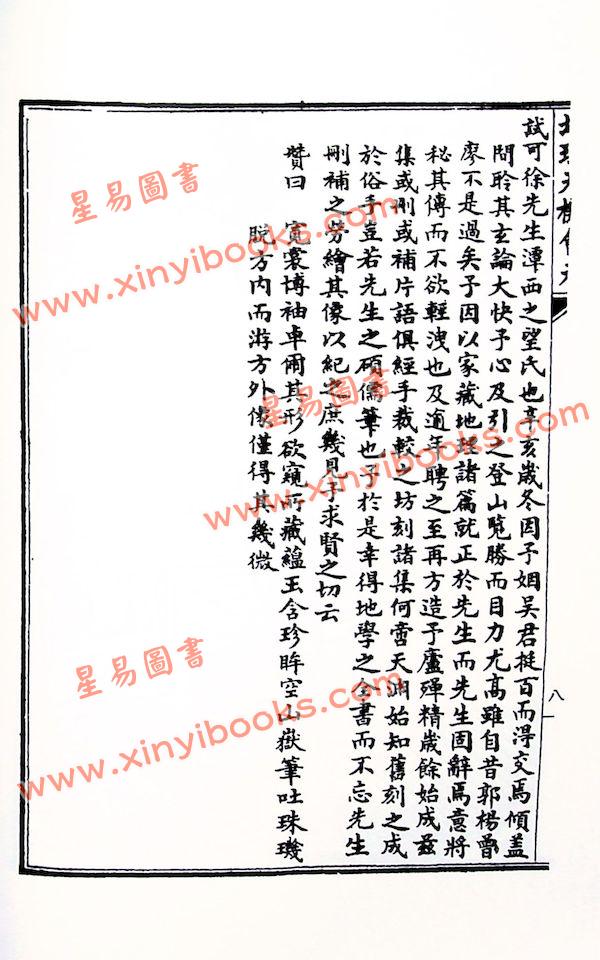 試可徐先生潭西之望氏也辛亥歲冬因予姻吳君挺百而得交焉傾蓋
間聆其玄論大快予心及引之登山覽勝而目力尤高雖自昔郭楊曾
廖不是過矣予因以家藏地理諸篇就正於先生而先生固辭焉意將
秘其傳而不欲輕洩也及逾年聘之至再方造予廬殫精歲餘始成茲
集或刪或補片語俱經手裁較之坊刻諸集何啻天淵始知舊刻之成
於俗手豈若先生之碩儒筆也予於是幸得地學之全書而不忘先生
刪補之勞繪其像以紀之庶幾見予求賢之切云
贊曰 寬裳博袖卓爾其形欲窺所藏蘊玉含珍眸空山嶽筆吐珠璣
脫方內而游方外像僅得其幾微
八
星易圖書
www.xinyibooks.com
星易圖書
www.xinyibooks.com
星易圖書
www.xinyibooks.com